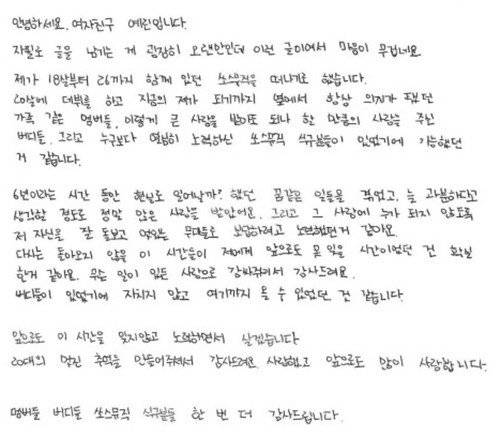 안녕하세요. 여자친구 예린입니다.
자필로 글을 남기는 게 굉장히 오랜만인데 이런 글이여서 마음이 무겁네요
제가 18살부터 26까지 함께 있던 쏘스뮤직을 떠나기로 했습니다.
20살에 데뷔를 하고 지금의 제가 되기까지 옆에서 항상 의지가 됐던
가족 같은 멤버들, 이렇게 큰 사랑을 받아도 되나 할 만큼의 사랑을 주신
버디들, 그리고 누구보다 열심히 노력하신 쏘스뮤직 식구분들이 있었기에 가능했던
거 같습니다.
6년이라는 시간 동안 현실로 일어날까? 했던 꿈같은 일들을 겪었고, 늘 과분하다고
생각할 정도로 정말 많은 사랑을 받았어요. 그리고 그 사랑에 누가 되지 않도록
저 자신을 잘 돌보고 멋있는 무대들로 보답하려고 노력했던거 같아요.
다시는 돌아오지 않을 이 시간들이 저에게 앞으로도 못 잊을 시간이었던 건 확실
한거 같아요. 무슨 일이 있든 사랑으로 감싸줘서 감사드려요.
버디들이 있었기에 지치지 않고 여기까지 올 수 있었던 건 같습니다.
앞으로도 이 시간을 잊지않고 노력하면서 살겠습니다
20대의 멋진 추억을 만들어주셔서 감사드려요. 사랑했고 앞으로도 많이 사랑합니다.
멤버들 버디들 쏘스뮤직 식구분들 한 번 더 감사드립니다.